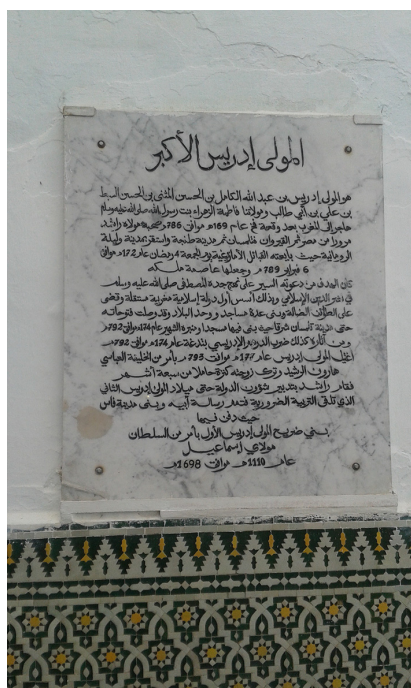 المولى إدريس الأكبر
هو المولى إدريس بن عبد الله الكامل بن الحسن المثنى بن الحسن السبط
بن علي بن أبي طالب ومولاتنا فاطمة الزهراء بنت رسول الله صلى الله عليه وسلم
هاجر إلى المغرب بعد وقعة فخ عام 169هـ موافق 786م وصحبه مولاه راشد
مرورا من مصر ثم القيروان فتلمسان ثم مدينة طنجة واستقر بمدينة وليلة
الرومانية حيث بايعته القبائل الأمازيغية يوم الجمعة 4 رمضان عام 172هـ موافق
6 فبراير 789م وجعلها عاصمة ملكه
كان الهدف من دعوته السير على نهج جده المصطفى صلى الله عليه وسلم
في نشر الدين الإسلامي وبذلك أسس أول دولة إسلامية مغربية مستقلة وقضى
على الطوائف الضالة وبنى عدة مساجد ووحد البلاد وقد وصلت فتوحاته
حتى مدينة تلمسان شرقا حيث بنى فيها مسجدا ومنبره الشهير عام 174هـ موافق 792م
ومن آثاره كذلك ضرب الدرهم الإدريسي بتدغة عام 174هـ موافق 792م
اغتيل المولى إدريس عام 177هـ موافق 793م بأمر من الخليفة العباسي
هارون الرشيد وترك زوجته كنزة حاملا من سبعة أشهر
فقام راشد بتدبير شؤون الدولة حتى ميلاد المولى إدريس الثاني
الذي تلقى التربية الضرورية فتمم رسالة أبيه وبنى مدينة فاس
حيث دفن فيها
بني ضريح المولى إدريس الأول بأمر من السلطان
مولاي إسماعيل
عام 1110هـ موافق 1698م